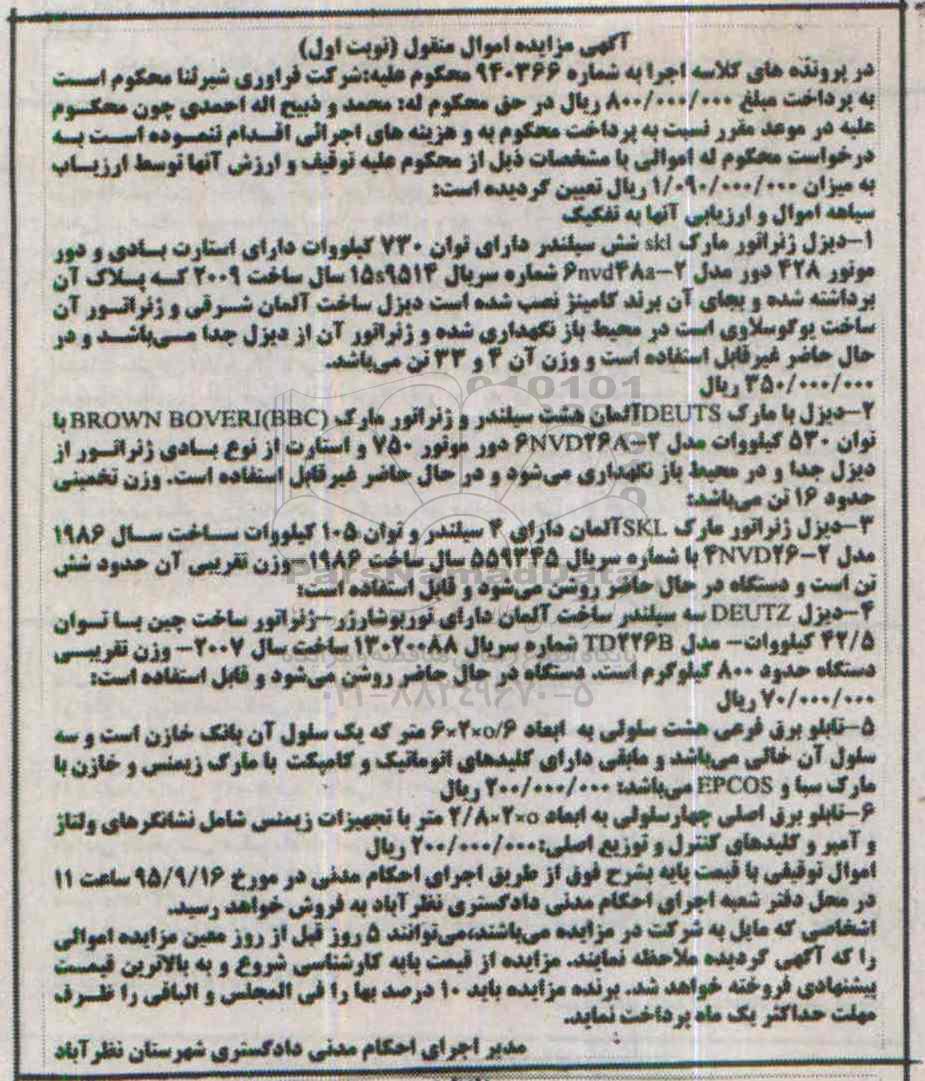 آگهی مزایده اموال منقول (نوبت اول)
در پرونده های کلاسه اجرا به شماره ۹۴۰۳۶۶ محکوم علیه:شرکت فراوری شیرلنا محکوم است
به پرداخت مبلغ ۸۰۰/۰۰۰/۰۰۰ ریال در حق محکوم له: محمد و ذبیح اله احمدی چون محکوم
علیه در موعد مقرر نسبت به پرداخت محکوم به و هزینه های اجرائی اقدام ننموده است به
درخواست محکوم له اموالی با مشخصات ذیل از محکوم علیه توقیف و ارزش آنها توسط ارزیاب
به میزان ۱/۰۹۰/۰۰۰/۰۰۰ ریال تعیین گردیده است:
سیاهه اموال و ارزیابی آنها به تفکیک
۱-دیزل ژنراتور مارک skl شش سیلندر دارای توان ۷۳۰ کیلووات دارای استارت بادی و دور
موتور ۴۲۸ دور مدل ۶nvd۴۸a-۲ شماره سریال ۱۵s۹۵۱۴ سال ساخت ۲۰۰۹ که پلاک آن
برداشته شده و بجای آن برند کامینز نصب شده است دیزل ساخت آلمان شرقی و ژنراتور آن
ساخت یوگوسلاوی است در محیط باز نگهداری شده و ژنراتور آن از دیزل جدا می‌باشد و در
حال حاضر غیرقابل استفاده است و وزن آن ۴ و ۳۳ تن می‌باشد.
۳۵۰/۰۰۰/۰۰۰ ریال
۲-دیزل با مارک DEUTSآلمان هشت سیلندر و ژنراتور مارک BROWN BOVERI(BBC) با
توان ۵۳۰ کیلووات مدل ۶NVD۲۶A-۲ دور موتور ۷۵۰ و استارت از نوع بادی ژنراتور از
دیزل جدا و در محیط باز نگهداری می‌شود و در حال حاضر غیرقابل استفاده است. وزن تخمینی
حدود ۱۶ تن می‌باشد:
۳-دیزل ژنراتور مارک SKLآلمان دارای ۴ سیلندر و توان ۱۰۵ کیلووات ساخت سال ۱۹۸۶
مدل ۴NVD۲۶-۲ با شماره سریال ۵۵۹۳۴۵ سال ساخت ۱۹۸۶-وزن تقریبی آن حدود شش
تن است و دستگاه در حال حاضر روشن می‌شود و قابل استفاده است:
۴-دیزل DEUTZ سه سیلندر ساخت آلمان دارای توربوشارژر-ژنراتور ساخت چین بسا توان
۴۲/۵ کیلووات- مدل TD۲۲۶B شماره سریال ۱۳۰۲۰۰۸۸ ساخت سال ۲۰۰۷- وزن تقریبی
دستگاه حدود ۸۰۰ کیلوگرم است. دستگاه در حال حاضر روشن می‌شود و قابل استفاده است:
۷۰/۰۰۰/۰۰۰ ریال
۵-تابلو برق فرعی هشت سلولی به ابعاد ۶×۲×۰/۶ متر که یک سلول آن بانک خازن است و سه
سلول آن خالی می‌باشد و مابقی دارای کلیدهای اتوماتیک و کامپکت با مارک زیمنس و خازن با
مارک سبا و EPCOS می‌باشد: ۲۰۰/۰۰۰/۰۰۰ ریال
۶-تابلو برق اصلی چهارسلولی به ابعاد ۲/۸×۲×۰ متر با تجهیزات زیمنس شامل نشانگرهای ولتاژ
و آمپر و کلیدهای کنترل و توزیع اصلی:۲۰۰/۰۰۰/۰۰۰ ریال
اموال توقیفی با قیمت پایه بشرح فوق از طریق اجرای احکام مدنی در مورخ ۹۵/۹/۱۶ ساعت ۱۱
در محل دفتر شعبه اجرای احکام مدنی دادگستری نظرآباد به فروش خواهد رسید.
اشخاصی که مایل به شرکت در مزایده می‌باشند،می‌توانند ۵ روز قبل از روز معین مزایده اموالی
را که آگهی گردیده ملاحظه نمایند. مزایده از قیمت پایه کارشناسی شروع و به بالاترین قیمت
پیشنهادی فروخته خواهد شد. برنده مزایده باید ۱۰ درصد بها را فی المجلس و الباقی را ظرف
مهلت حداکثر یک ماه پرداخت نماید.
مدیر اجرای احکام مدنی دادگستری شهرستان نظرآباد
ParsNamadData
۰۲۱-۸۸۳۴۹۶۷۰-۵